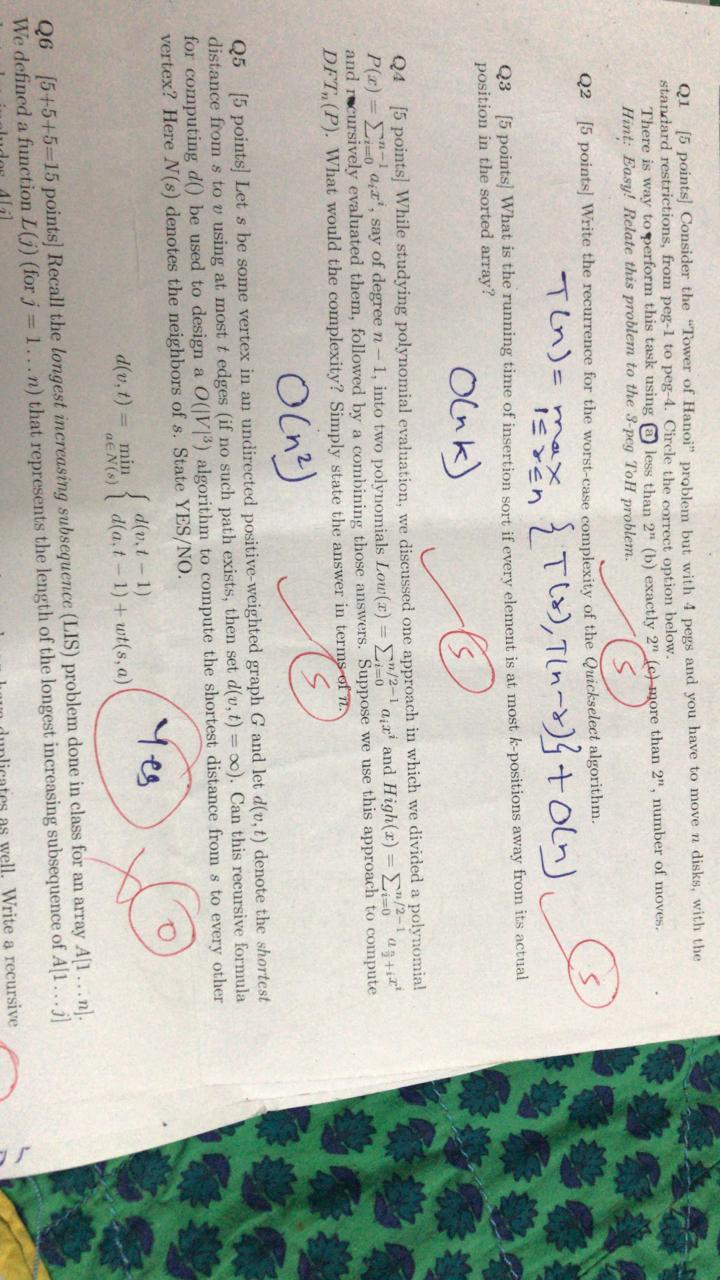 Q1 [5 points] Consider the "Tower of Hanoi" problem but with 4 pegs and you have to move n disks, with the
standard restrictions, from peg-1 to peg-4. Circle the correct option below.
There is way to perform this task using (a) less than 2ⁿ (b) exactly 2ⁿ (c) more than 2ⁿ, number of moves.
Hint: Easy! Relate this problem to the 3-peg ToH problem.
5
Q2 [5 points] Write the recurrence for the worst-case complexity of the Quickselect algorithm.
5
T(n) = max 1≤r≤n { T(r), T(n-r)} + O(n)
Q3 [5 points] What is the running time of insertion sort if every element is at most k-positions away from its actual
position in the sorted array?
O(nk)
5
Q4 [5 points] While studying polynomial evaluation, we discussed one approach in which we divided a polynomial
P(x) = ∑ᵢ₌₀ⁿ⁻¹ aᵢxⁱ, say of degree n − 1, into two polynomials Low(x) = ∑ᵢ₌₀^{n/2−1} aᵢxⁱ and High(x) = ∑ᵢ₌₀^{n/2−1} a_{n/2+i}xⁱ
and recursively evaluated them, followed by a combining those answers. Suppose we use this approach to compute
DFTₙ(P). What would the complexity? Simply state the answer in terms of n.
O(n²)
5
Q5 [5 points] Let s be some vertex in an undirected positive-weighted graph G and let d(v,t) denote the shortest
distance from s to v using at most t edges (if no such path exists, then set d(v,t) = ∞). Can this recursive formula
for computing d() be used to design a O(|V|³) algorithm to compute the shortest distance from s to every other
vertex? Here N(s) denotes the neighbors of s. State YES/NO.
Yes
0
d(v,t) = min a∈N(s) { d(v,t − 1)
d(a,t − 1) + wt(s,a)
Q6 [5+5+5=15 points] Recall the longest increasing subsequence (LIS) problem done in class for an array A[1...n].
We defined a function L(j) (for j = 1...n) that represents the length of the longest increasing subsequence of A[1...j]
includes A[j]
have duplicates as well. Write a recursive